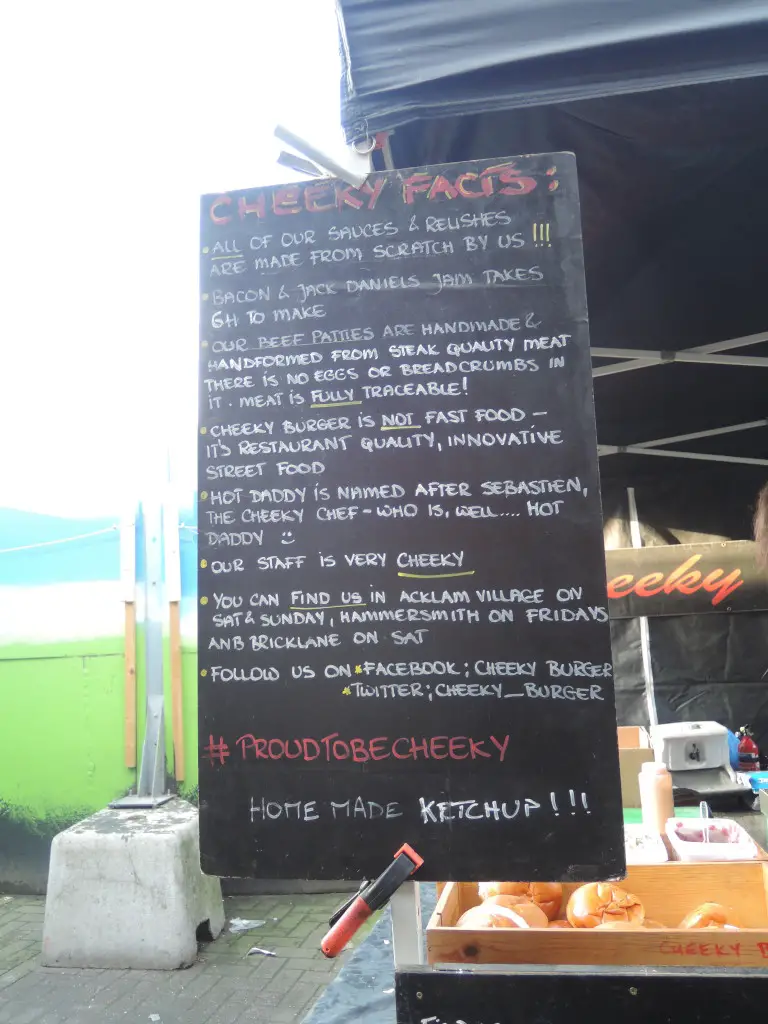 CHEEKY FACTS:
• ALL OF OUR SAUCES & RELISHES
ARE MADE FROM SCRATCH BY US !!!
• BACON & JACK DANIELS JAM TAKES
6H TO MAKE
• OUR BEEF PATTIES ARE HANDMADE &
HANDFORMED FROM STEAK QUALITY MEAT
THERE IS NO EGGS OR BREADCRUMBS IN
IT. MEAT IS FULLY TRACEABLE!
• CHEEKY BURGER IS NOT FAST FOOD –
IT'S RESTAURANT QUALITY, INNOVATIVE
STREET FOOD
• HOT DADDY IS NAMED AFTER SEBASTIEN,
THE CHEEKY CHEF – WHO IS, WELL.... HOT
DADDY ☺
• OUR STAFF IS VERY CHEEKY
• YOU CAN FIND US IN ACKLAM VILLAGE ON
SAT & SUNDAY, HAMMERSMITH ON FRIDAYS
ANB BRICKLANE ON SAT
• FOLLOW US ON *FACEBOOK; CHEEKY BURGER
*TWITTER; CHEEKY_BURGER
# PROUDTOBECHEEKY
HOME MADE KETCHUP!!!
eeky
CHEEKY B